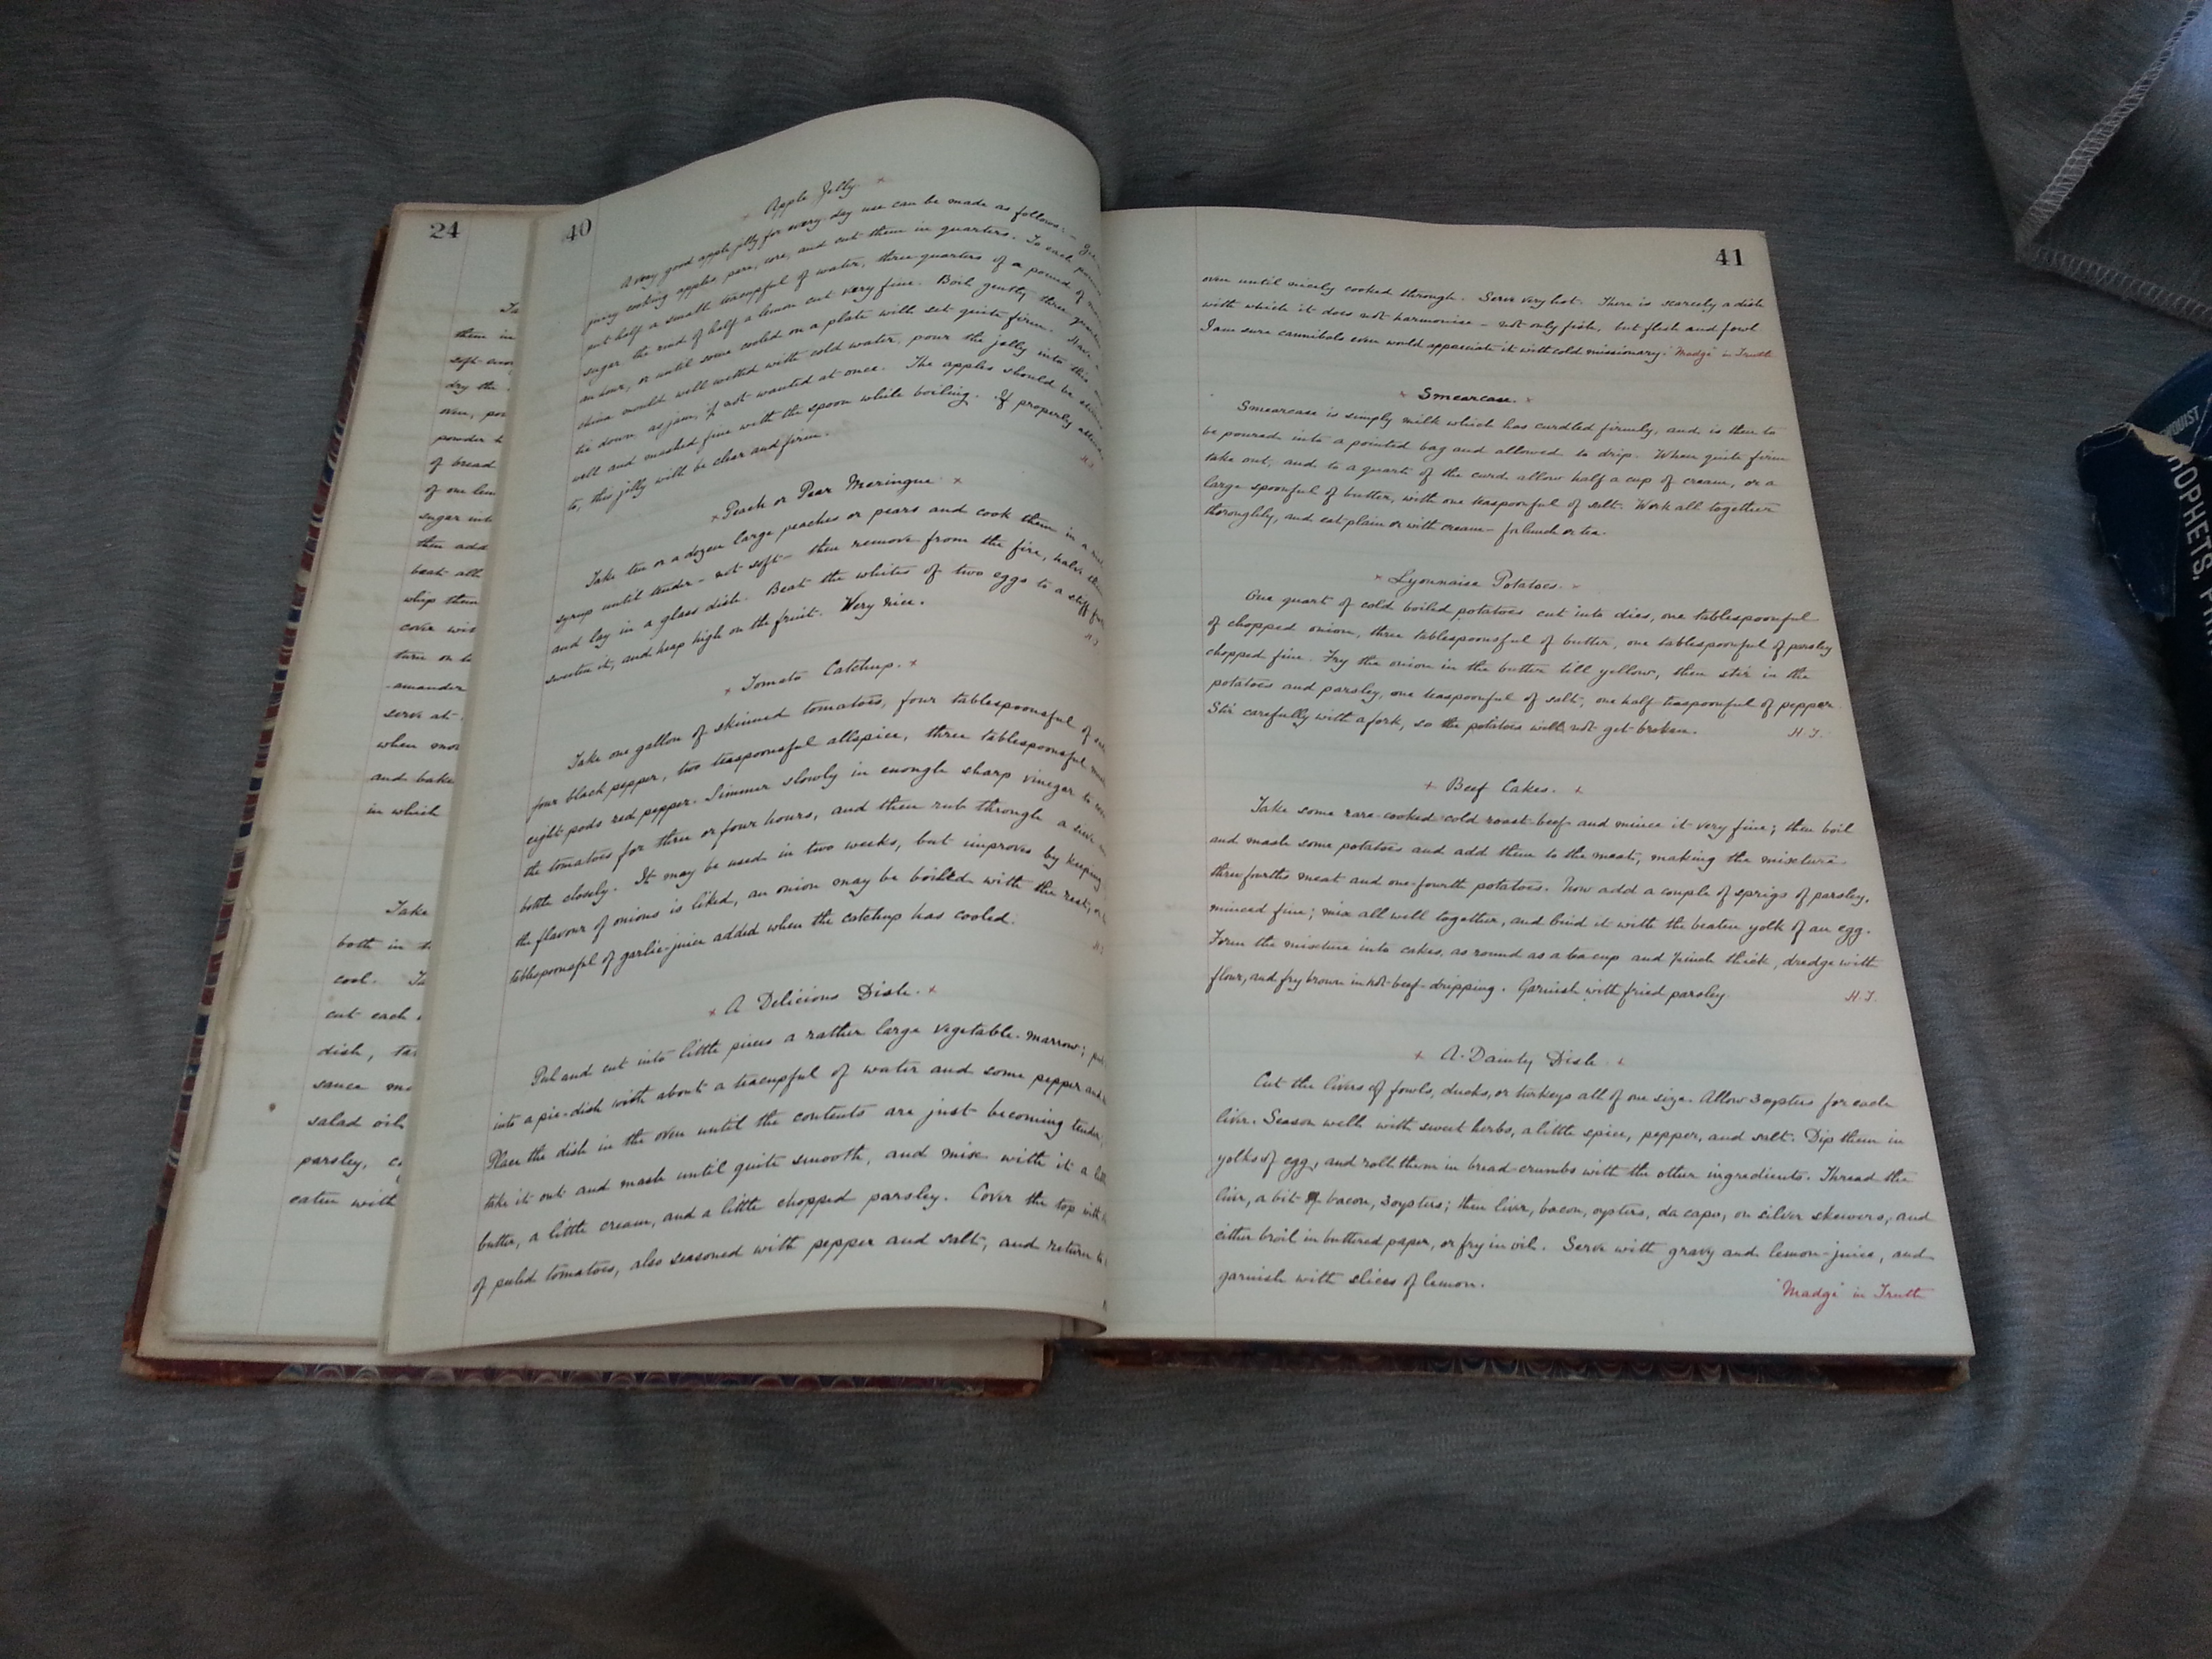 24
Ta
them in
soft
dry the
oven, po
powder
of bread
of one lem
sugar int
then add
beat all
whip them
cover wit
turn on to
amander
serve at
when
and bake
in which
Take
both in t
cool. Ta
cut each
dish, ta
sauce
salad oil
parsley,
eaten with
40
Apple Jelly
A very good apple jelly for every-day use can be made as follows:-
juicy cooking apples, pare, core, and cut them in quarters. To each
put half a small teacupful of water, three-quarters of a pound of
sugar the rind of half a lemon cut very fine. Boil gently three
an hour, or until some cooled on a plate will set quite firm. Have
china mould well wetted with cold water, pour the jelly into this
tie down, as jam, if not wanted at once. The apples should be
well and mashed fine with the spoon while boiling. If properly
to, this jelly will be clear and firm.
Peach or Pear Meringue
Take ten or a dozen large peaches or pears and cook them in a
syrup until tender - not soft - then remove from the fire,
and lay in a glass dish. Beat the whites of two eggs to a stiff
sweeten it, and heap high on the fruit. Very nice.
Tomato Catchup.
Take one gallon of skinned tomatoes, four tablespoonsful of
four black pepper, two teaspoonsful allspice, three tablespoonsful
eight pods red pepper. Simmer slowly in enough sharp vinegar to
the tomatoes for three or four hours, and then rub through a sieve
bottle closely. It may be used in two weeks, but improves by keeping
the flavour of onions is liked, an onion may be boiled with the rest,
tablespoonsful of garlic-juice added when the catchup has cooled.
A Delicious Dish.
Peel and cut into little pieces a rather large vegetable-marrow;
into a pie-dish with about a teacupful of water and some pepper and
Place the dish in the oven until the contents are just becoming tender,
take it out and mash until quite smooth, and mix with it a
butter, a little cream, and a little chopped parsley. Cover the top with
of peeled tomatoes, also seasoned with pepper and salt, and return to
41
oven until nicely cooked through. Serve very hot. There is scarcely a dish
with which it does not harmonise - not only fish, but flesh and fowl
I am sure cannibals even would appreciate it with cold missionary. "Madge" in Truth
Smearcase.
Smearcase is simply milk which has curdled firmly, and is then to
be poured into a pointed bag and allowed to drip. When quite firm
take out, and to a quart of the curd allow half a cup of cream, or a
large spoonful of butter, with one teaspoonful of salt. Work all together
thoroughly, and eat plain or with cream - for lunch or tea.
Lyonnaise Potatoes.
One quart of cold boiled potatoes cut into dies, one tablespoonful
of chopped onion, three tablespoonsful of butter, one tablespoonful of parsley
chopped fine. Fry the onion in the butter till yellow, then stir in the
potatoes and parsley, one teaspoonful of salt, one half teaspoonful of pepper.
Stir carefully with a fork, so the potatoes will not get broken. H.J.
Beef Cakes.
Take some rare-cooked cold roast-beef and mince it very fine; then boil
and mash some potatoes and add them to the meat, making the mixture
three fourths meat and one-fourth potatoes. Now add a couple of sprigs of parsley,
minced fine; mix all well together, and bind it with the beaten yolk of an egg.
Form the mixture into cakes, as round as a tea cup and ½ inch thick, dredge with
flour, and fry brown in hot beef-dripping. Garnish with fried parsley H.J.
A Dainty Dish
Cut the livers of fowls, ducks, or turkeys all of one size. Allow 3 oysters for each
liver. Season well with sweet herbs, a little spice, pepper, and salt. Dip them in
yolks of egg, and roll them in bread-crumbs with the other ingredients. Thread the
liver, a bit of bacon, 3 oysters; then liver, bacon, oysters, da capo, on silver skewers, and
either broil in buttered paper, or fry in oil. Serve with gravy and lemon-juice, and
garnish with slices of lemon.
"Madge" in Truth